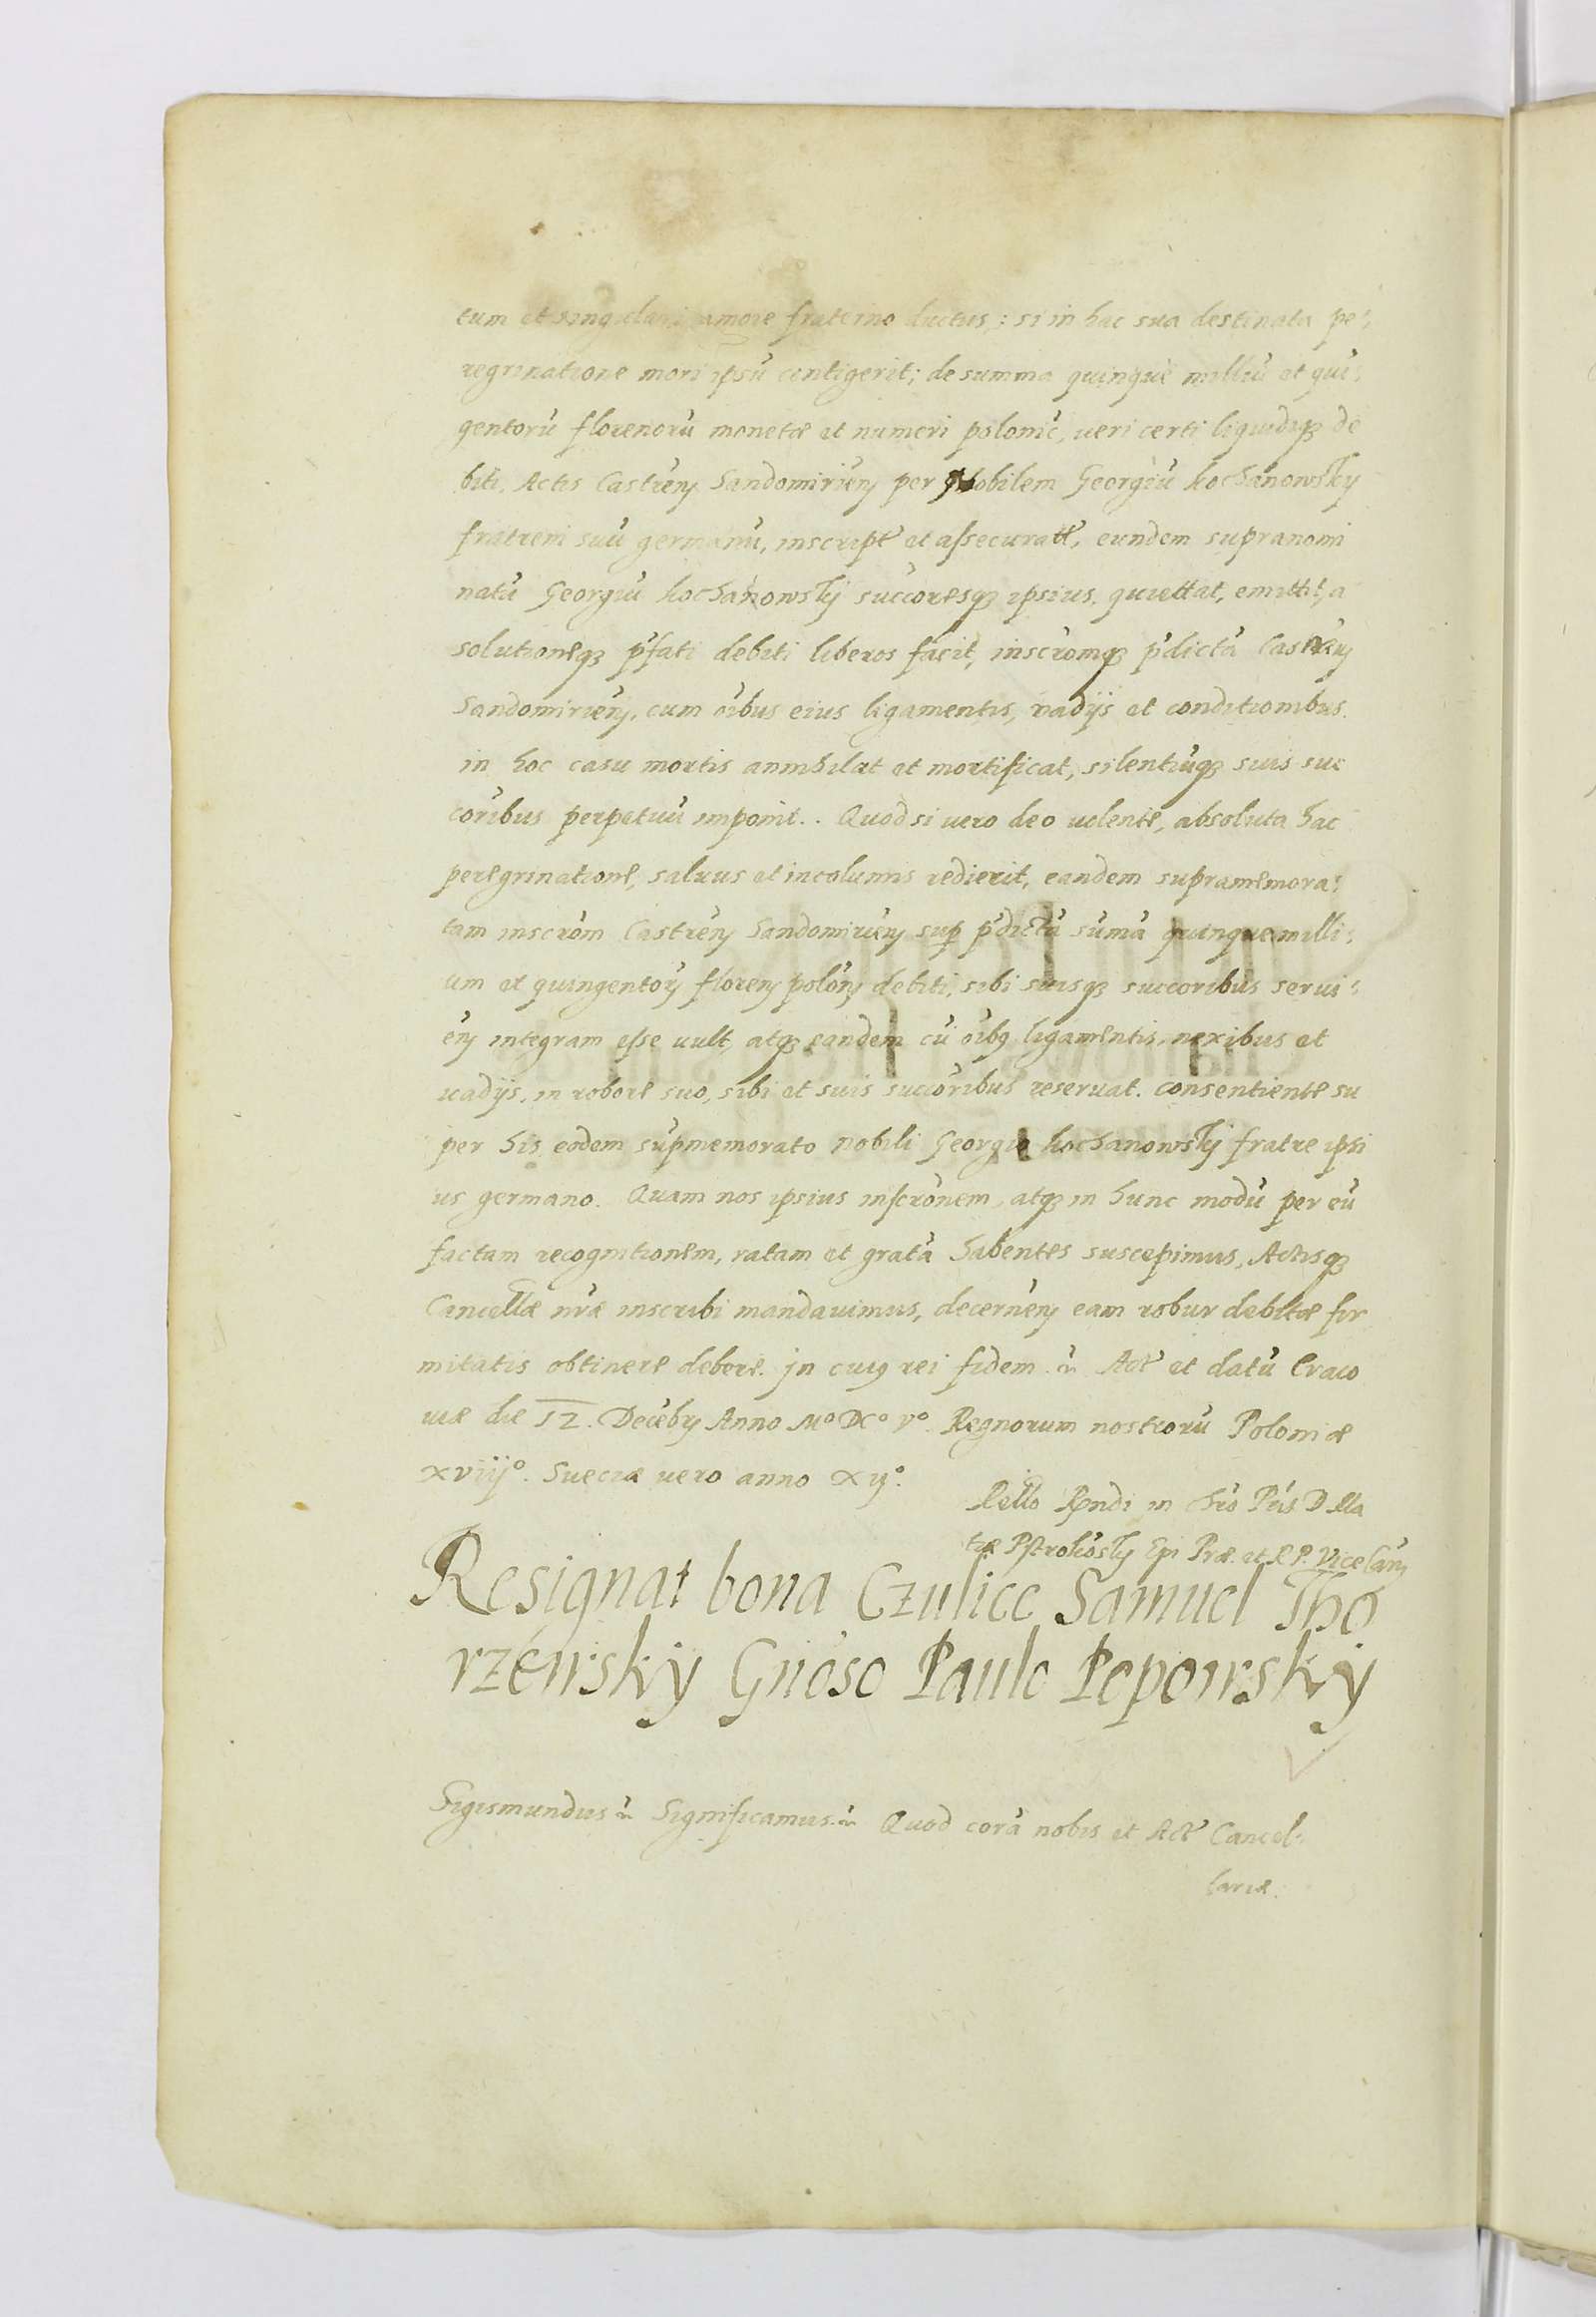 tum et singulari amore fraterno ductus; si in hac sua destinata pe:
regrinatione mori ipsũ contigerit; de summa quinque milliũ et quin:
gentorũ florenorũ monetæ et numeri polonic, ueri certi liquidiq3 de
biti, Actis Castreñ Sandomirieñ per Nobilem Georgiũ Kochanowsky
fratrem suũ germanũ, inscript et assecurat, eundem supranomi
natũ Georgiũ Kochanowskj succoresq3 ipsius, quiettat, emittit, a
solutioneq3 p̃fati debiti liberos facit, inscromq3 p̃dictã Castreñ
Sandomirieñ, cum oĩbus eius ligamentis, vadijs et conditionibus
in hoc casu mortis annihilat et mortificat, silentiũq3 suis suc
coribus perpetuũ imponit.. Quod si uero deo uolente, absoluta hac
peregrinatione, saluus et incolumis redierit, eandem supramemora:
tam inscrom Castreñ Sandomirieñ sup p̃dictã sum̃ã quinque milli:
um et quingentorũ floreñ poloñ debiti, sibi suisq3 succoribus serui:
eñ integram esse uult, atq3 eandem cũ oĩbq ligamentis, nexibus et
uadijs, in robore suo, sibi et suis succoribus reseruat. consentiente su
per his eodem supmemorato nobili Georgio Kochanowskj fratre ipsi
us germano. Quam nos ipsius inscronem, atq3 in hunc modũ per eũ
factam recognitionem, ratam et gratã habentes suscepimus, Actisq3
Cancellæ nr̃æ inscribi mandauimus, decerneñ eam robur debitæ fir
mitatis obtinere debere. Jn cuiq rei fidem Act et datũ Craco
uiæ die 12. Decẽbr Anno Mº DCº Vº. Regnorum nostrorũ Poloniæ
XViijº. Sueciæ uero anno Xijº.
Rello Rndi in Chro Pr̃is D Ma
tiæ Pstrokoñskj Epi Præ. et R P. ViceCañ
Resignat bona Czulice Samuel Tho
rzẽwsky Gñoso Paulo Popowsky
Sigismundus Significamus Quod corã nobis et Act Cancel:
lariæ.